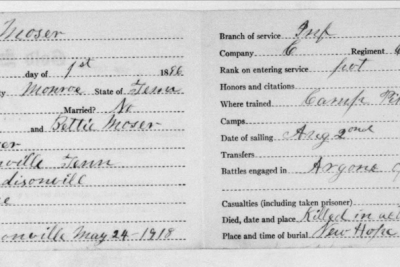 Moser
day of 1st 1886
Monroe State of Tenn
Married? No
and Bettie Moser
ville Tenn
disonvill
onville May 24-1918
Branch of service Inf
Company C Regiment
Rank on entering service pvt
Honors and citations
Where trained Camp
Camps
Date of sailing Aug 2nd
Transfers
Battles engaged in Argone
Casualties (including taken prisoner)
Died, date and place Killed in
Place and time of burial New Hope